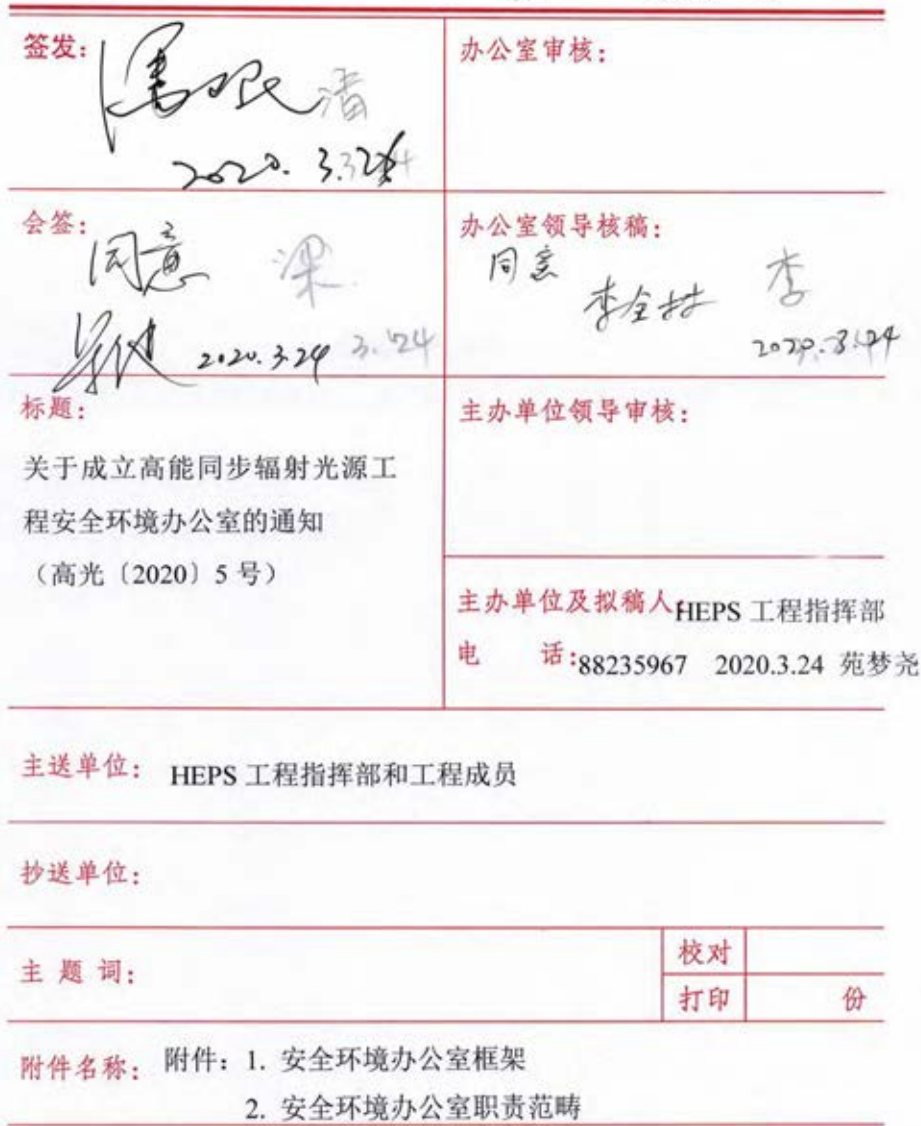 签发:
2020. 3.
办公室审核:
会签:
同意
梁
2020.3.24 3.24
办公室领导核稿:
同意
李
2020.3.24
标题:
关于成立高能同步辐射光源工
程安全环境办公室的通知
(高光〔2020〕5 号)
主办单位领导审核:
主办单位及拟稿人:HEPS 工程指挥部
电 话:88235967 2020.3.24 苑梦尧
主送单位: HEPS 工程指挥部和工程成员
抄送单位:
主 题 词:
校对
打印 份
附件名称: 附件: 1. 安全环境办公室框架
2. 安全环境办公室职责范畴